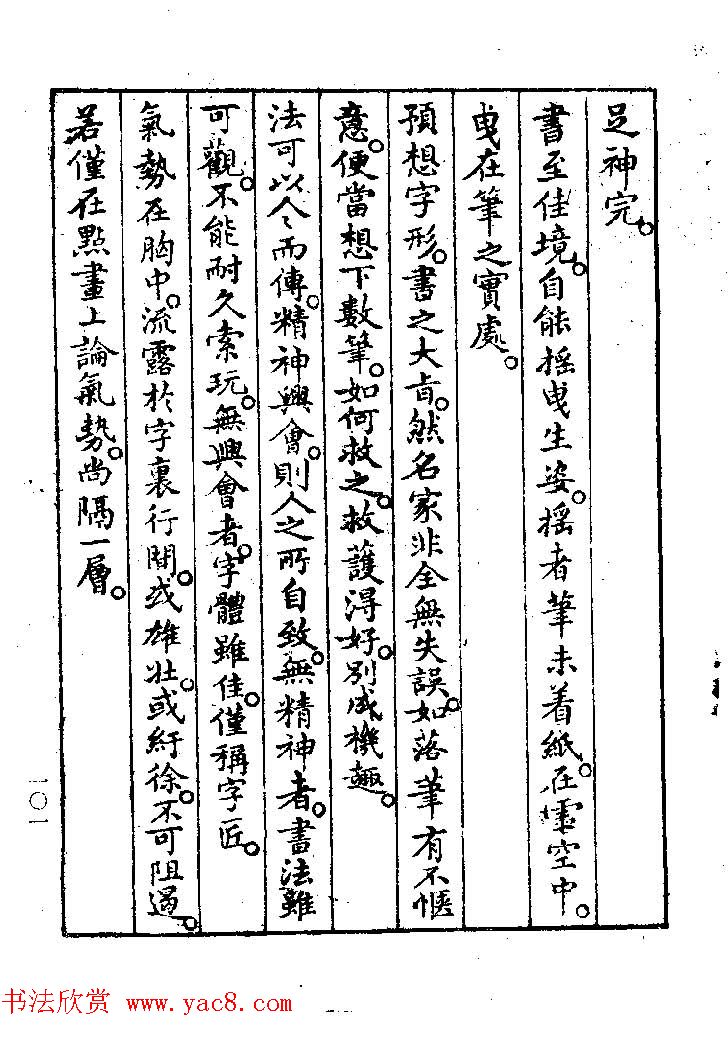 足神完。
書至佳境。自能摇曳生姿。摇者筆未着紙。在虛空中。
曳在筆之實處。
預想字形。書之大旨。然名家非全無失誤。如落筆有不愜
意。便當想下數筆。如何救之。救護得好。別成機趣。
法可以人而傳。精神興會。則人之所自致。無精神者。書法雖
可觀。不能耐久索玩。無興會者。字體雖佳。僅稱字匠。
氣勢在胸中。流露於字裏行間。或雄壯。或紆徐。不可阻遏。
若僅在點畫上論氣勢。尚隔一層。
一〇一
书法欣赏 www.yac8.com